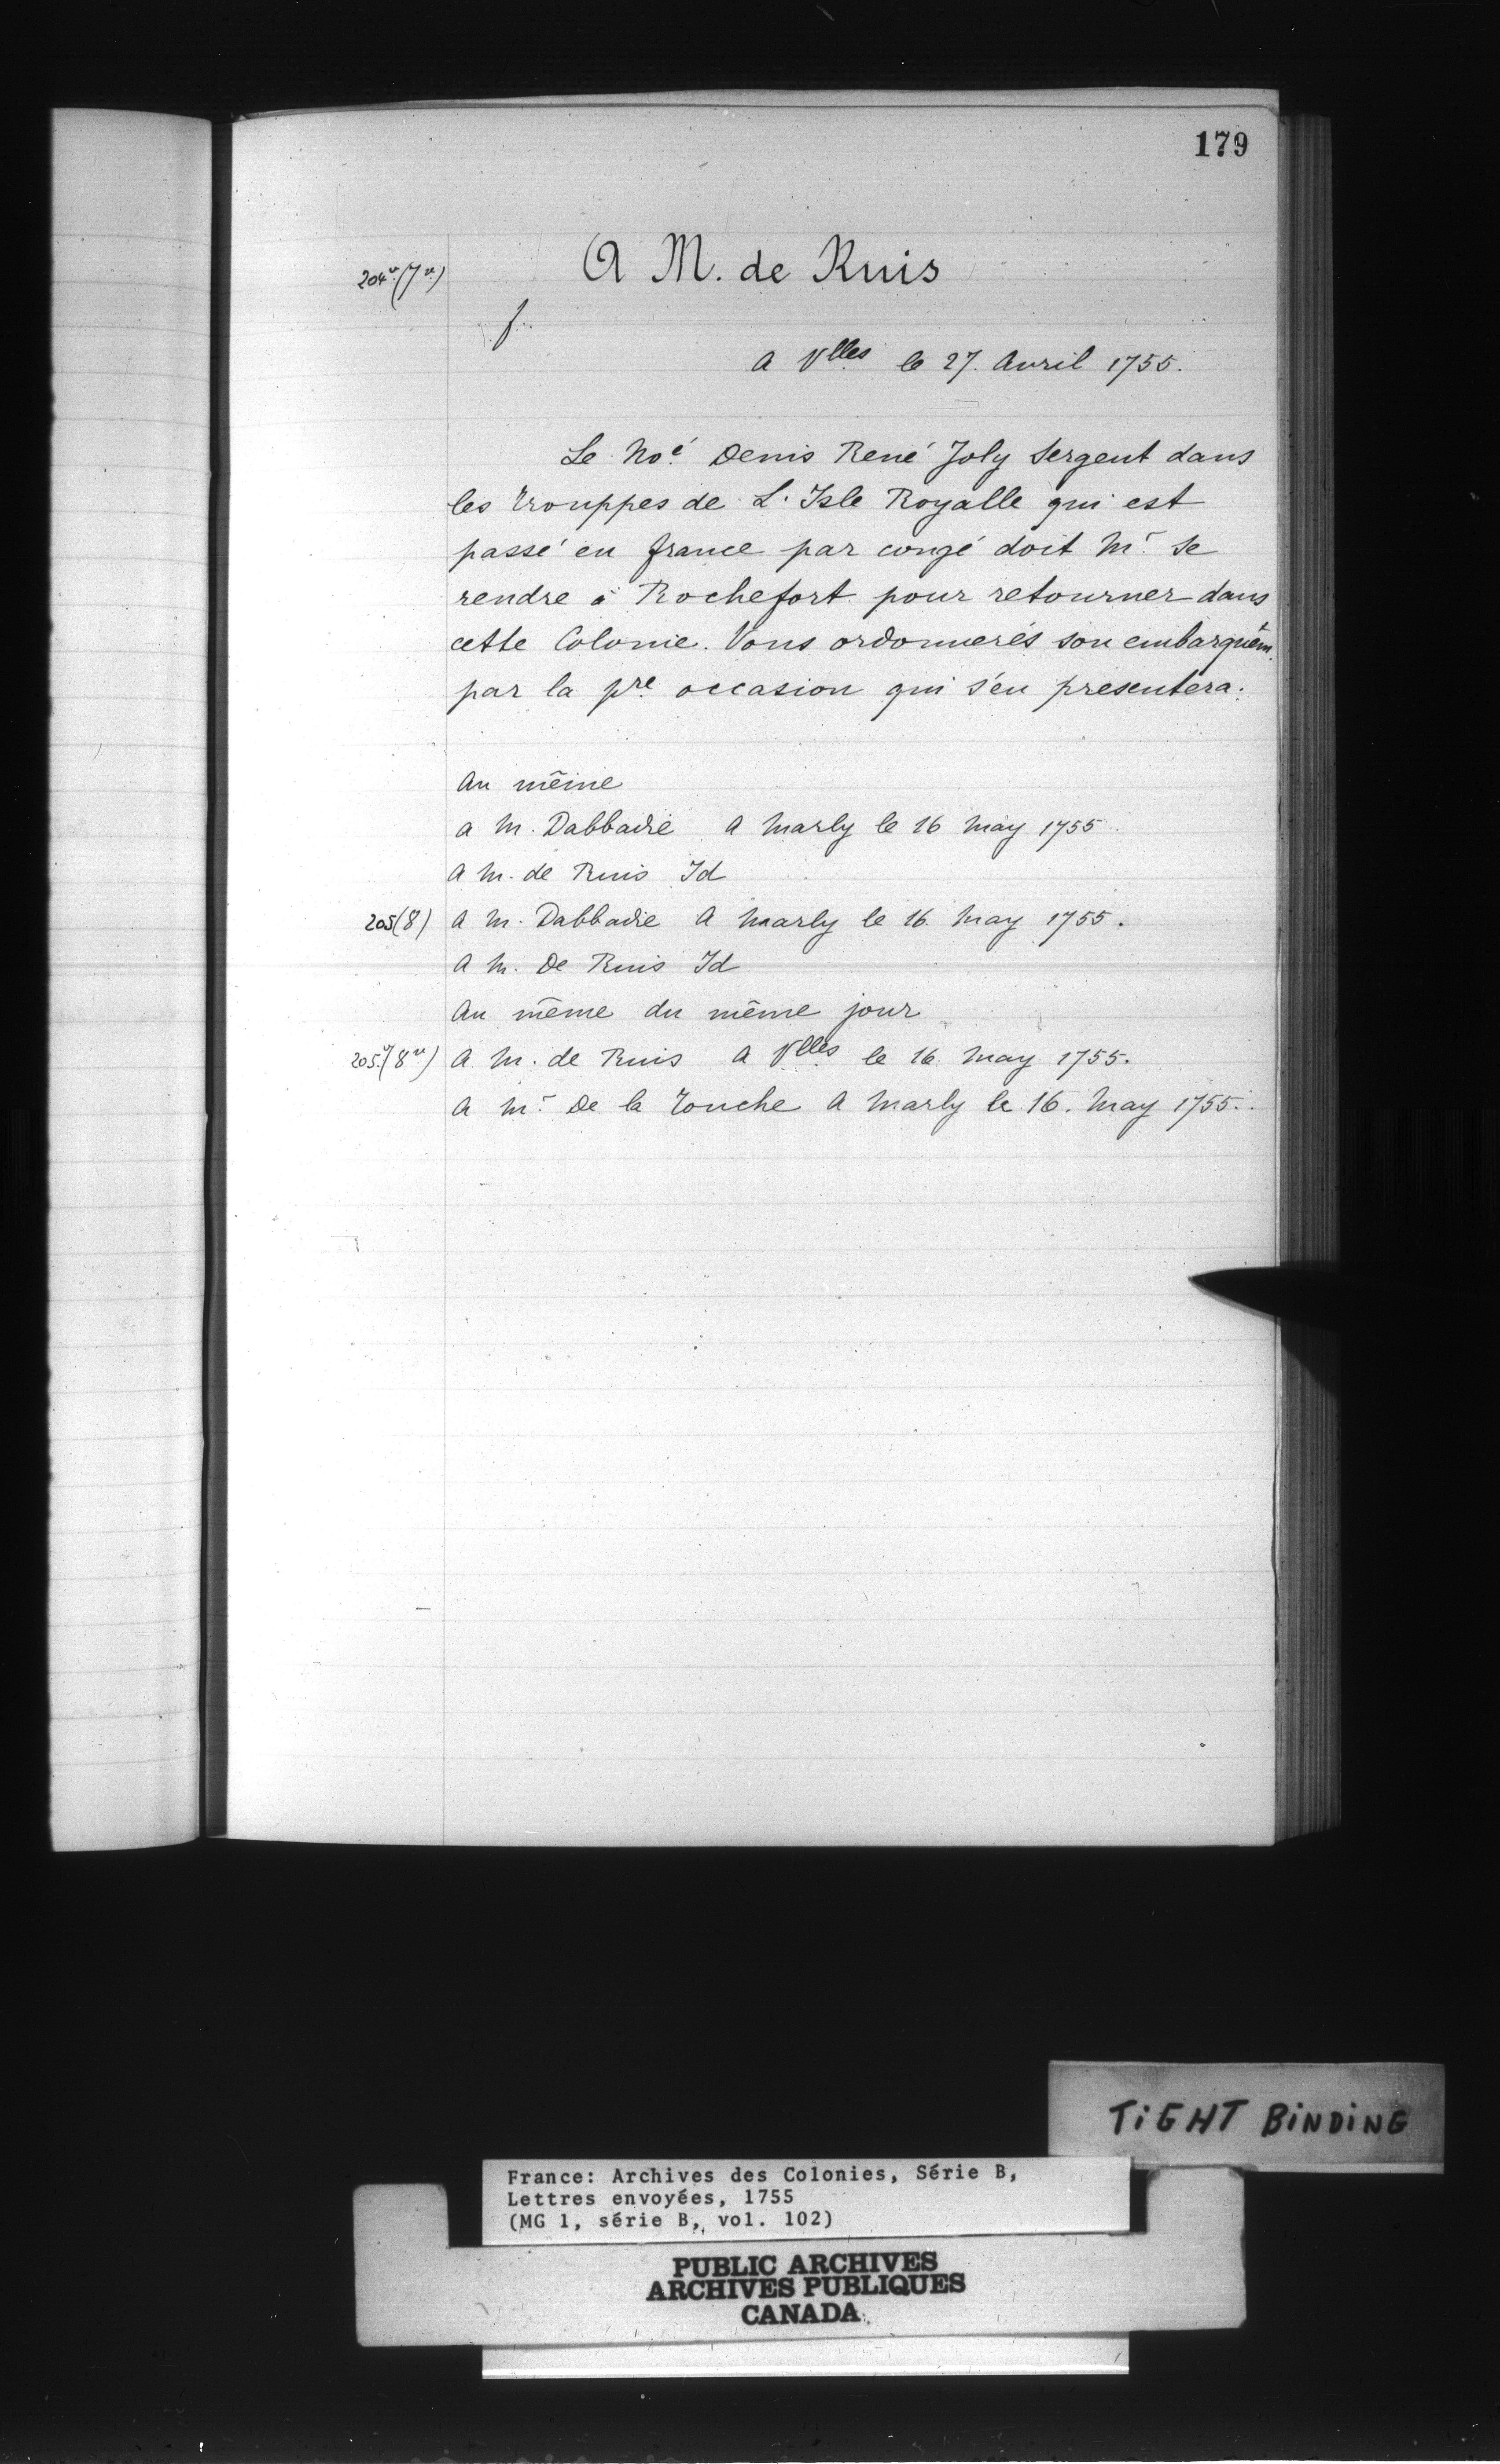 179
204v.(7v.) A M. de Ruis
f.
A Vlles le 27. Avril 1755.
Le Noé. Denis René Joly Sergent dans
les trouppes de L'Isle Royalle qui est
passé en france par congé doit Mr. se
rendre à Rochefort pour retourner dans
cette Colonie. Vous ordonnerés son embarquemt.
par la pre. occasion qui s'en presentera.
Au même
a M. Dabbadie A Marly le 16 May 1755.
A M. de Ruis Id
205(8) A M. Dabbadie A Marly le 16. May 1755.
A M. De Ruis Id
Au même du même jour
205.v(8v) A M. de Ruis A Vlles le 16 May 1755.
A Mr. De la Touche A Marly le 16. May 1755.
TiGHT BiNDiNG
France: Archives des Colonies, Série B,
Lettres envoyées, 1755
(MG 1, série B, vol. 102)
PUBLIC ARCHIVES
ARCHIVES PUBLIQUES
CANADA